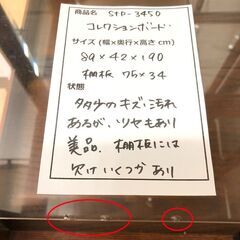 商品名 StD-3450
コレクションボード
サイズ (幅×奥行×高さ cm)
89×42×190
棚板 75×34
状態
タタナのキズ、汚れ
あるが、ツヤもあり
美品。棚板には
欠けいくつかあり